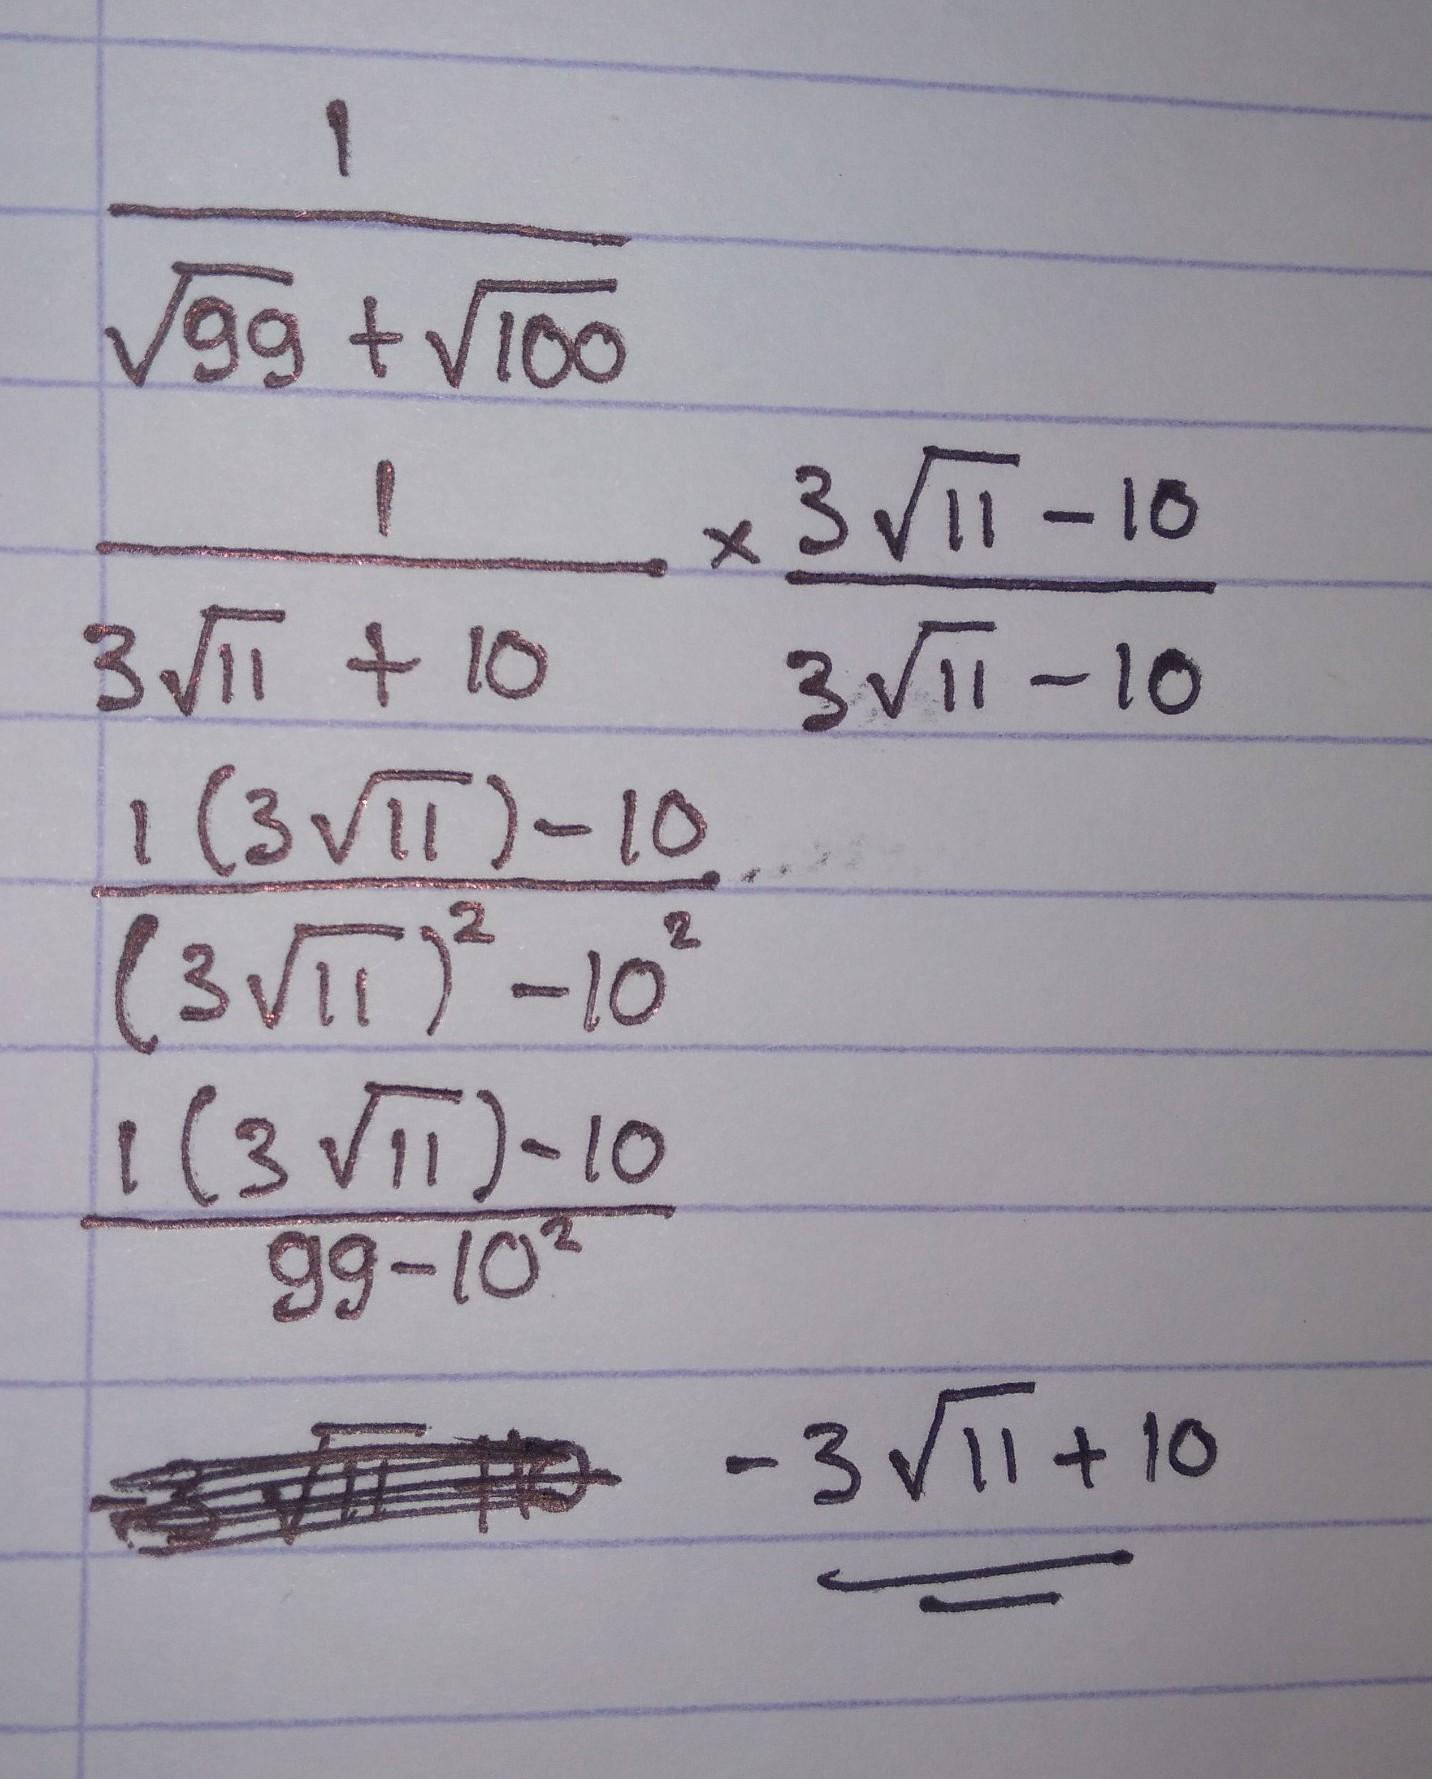 1
√99 + √100
1 × 3√11 - 10
3√11 + 10 3√11 - 10
1(3√11) - 10
(3√11)² - 10²
1(3√11) - 10
99 - 10²
-3√11 + 10